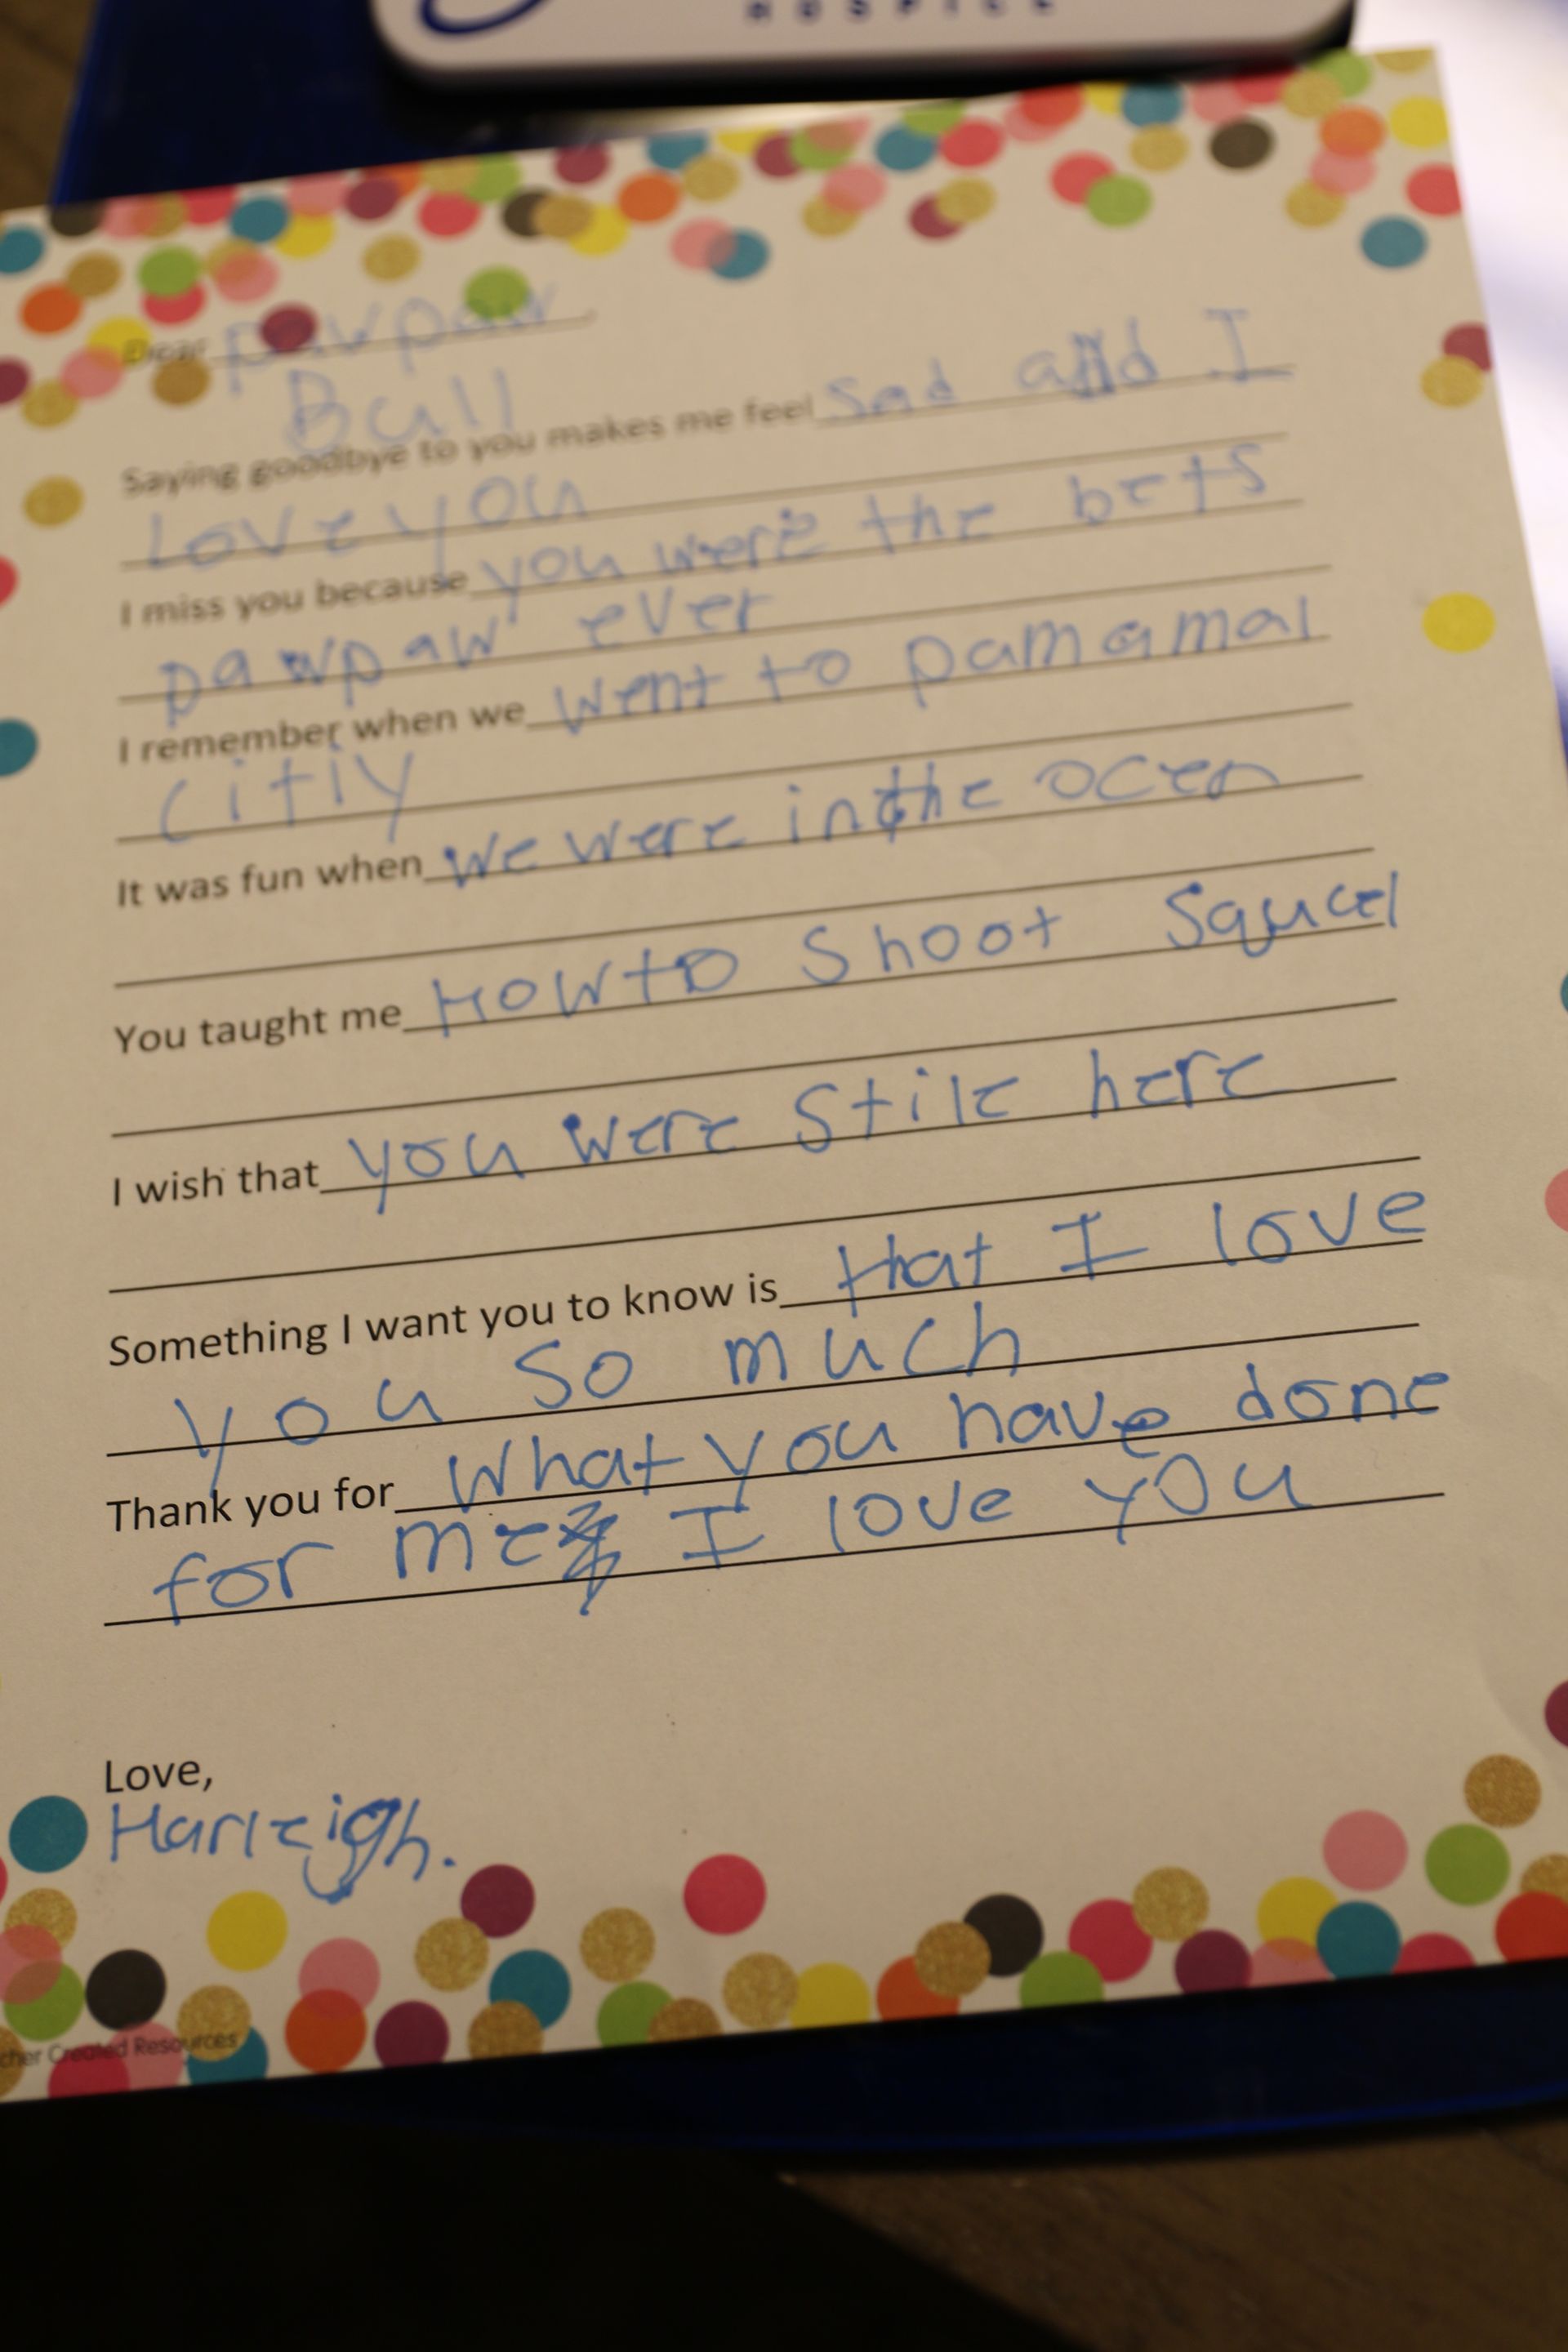 HOSPICE
Dear pawpaw
Bull
Saying goodbye to you makes me feel sad and I
Love you
I miss you because you were the bets
pawpaw ever
I remember when we went to pamamal
citiy
It was fun when we were in the ocen
You taught me How to Shoot Squcel
I wish that you were Stile here
Something I want you to know is that I love
you so much
Thank you for what you have done
for me I love you
Love,
Harleigh.
cher Created Resources